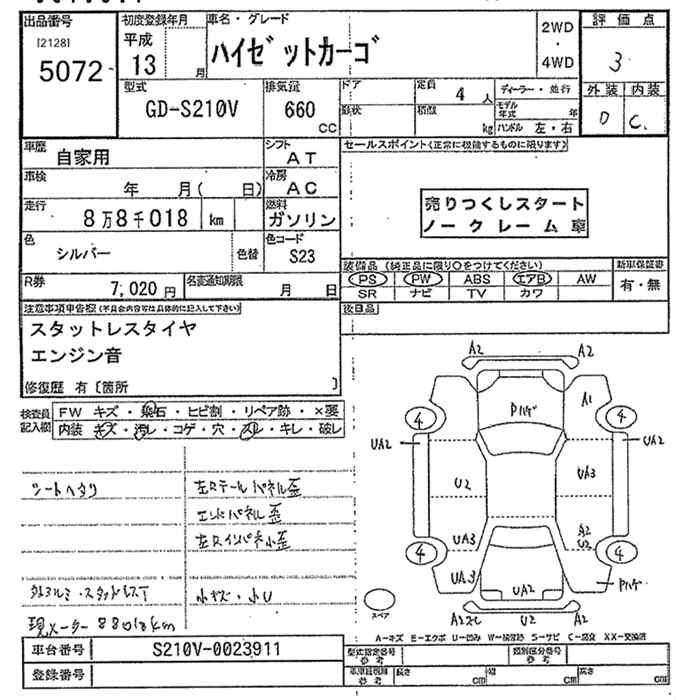 出品番号 初度登録年月 車名・グレード 2WD・4WD 評価点
[2128] 5072 平成 13 月 ハイゼットカーゴ 3
型式 GD-S210V 排気量 660 CC ドア 定員 4 人 ディーラー・並行 外装 内装
形状 積載 kg モデル年式 年 ハンドル 左・右 D C
車歴 自家用 シフト AT セールスポイント(正常に機能するものに限ります)
車検 年 月( 日) 冷房 AC
走行 8万8千018 km 燃料 ガソリン 売りつくしスタート
ノークレーム車
色 シルバー 色替 色コード S23
装備品(純正品に限り○をつけてください) 新車保証書
R券 7,020円 名変通知期限 月 日 PS PW ABS エアB AW 有・無
SR ナビ TV カワ
注意事項申告欄(不具合内容等は具体的に記入して下さい) 後日品
スタットレスタイヤ
エンジン音
修復歴 有〔箇所 〕
検査員記入欄 FW キズ・飛石・ヒビ割・リペア跡・×要
内装 キズ・汚レ・コゲ・穴・スレ・キレ・破レ
シートヘタリ 左右テールパネル歪
エンドパネル歪
左右インパネ小歪
外アルミ・スタットレスT 小キズ・小U
現メーター 88018km
A2 A2
Pハゲ A1
4 4
UA2 UA2
U2 UA3
A2
UA3 U2
4 4
UA3 UA2 Pハゲ
スペア U2 A2
A-キズ E-エクボ U-凹み W-補修跡 S-サビ C-腐食 XX-交換済
車台番号 S210V-0023911 型式指定番号 参考 類別区分番号 参考
登録番号 車車証複製 参考 長さ cm 幅 cm 高さ cm